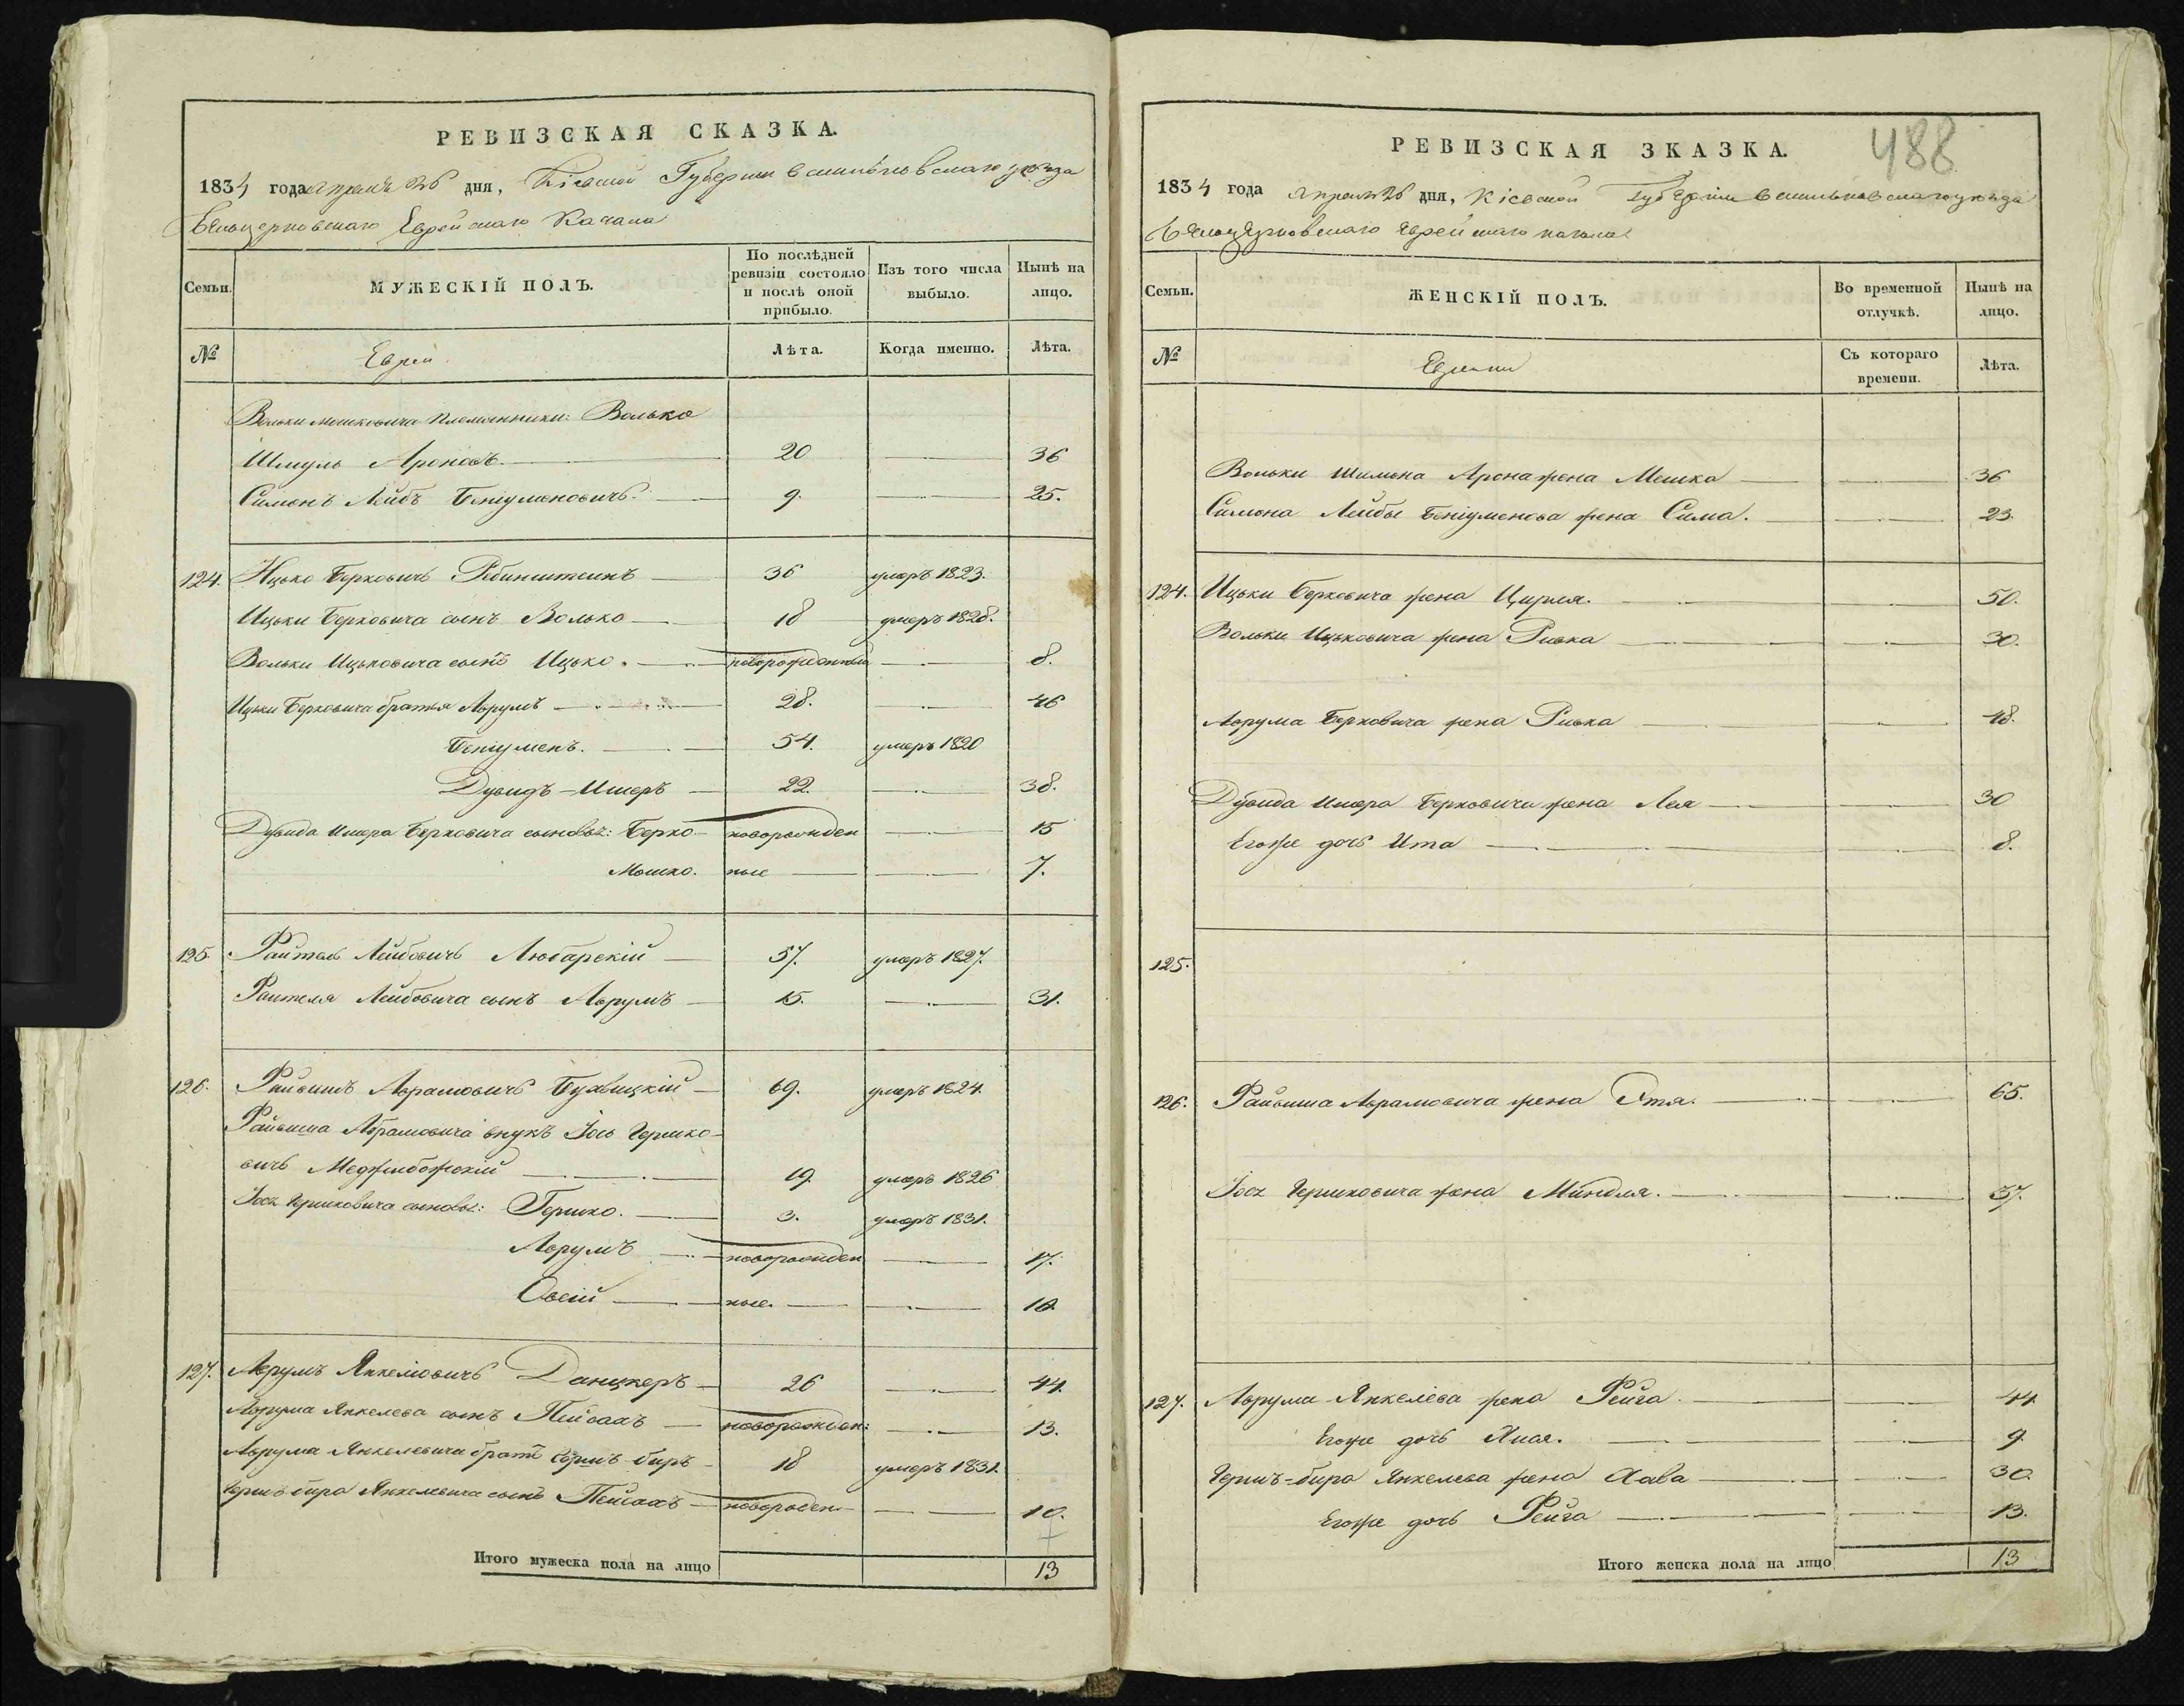 РЕВИЗСКАЯ СКАЗКА.
1834 года апреля 26 дня, Кіевской Губерніи Васильковскаго уѣзда
Бѣлоцерковскаго Еврейскаго Кагала
Семьи.
МУЖЕСКІЙ ПОЛЪ.
По послѣдней ревизіи состояло и послѣ оной прибыло.
Изъ того числа выбыло.
Нынѣ на лицо.
№
Евреи
Лѣта.
Когда именно.
Лѣта.
Вольки Мошковича племянники: Волько
Шмуль Ароновъ. 20 36
Симонъ Лейбъ Беніуменовичъ. 9. 25.
124. Ицько Берковичъ Рабинштеинъ 36 умеръ 1823.
Ицьки Берковича сынъ Волько 18 умеръ 1828.
Вольки Ицьковича сынъ Ицько. новорожденный 8.
Ицьки Берковича братья Аврумъ 28. 46
Беніуменъ. 54. умеръ 1820
Дувидъ-Имеръ 22. 38.
Дувида Имера Берковича сыновья: Берко новорожден 15
Мошко. ные 7.
125. Файтель Лейбовичъ Любарскій 57. умеръ 1827.
Фаителя Лейбовича сынъ Аврумъ 15. 31.
126. Файвишъ Аврамовичъ 69. умеръ 1824.
Файвиша Абрамовича внукъ Іось Гершко-
вичъ Меджибожскій 19. умеръ 1826
Іося Гершковича сыновья: Гершко. 3. умеръ 1831.
Аврумъ новорожден 17.
Овсій ные. 10.
127. Аврумъ Янкелювичъ Данцкеръ 26 44.
Аврума Янкелева сынъ Пейсахъ новорожден: 13.
Аврума Янкелевича братъ Гершъ-биръ 18 умеръ 1831.
Гершъ-бира Янкелевича сынъ Пейсахъ новорожден 10.
Итого мужеска пола на лицо 13
РЕВИЗСКАЯ ЗКАЗКА.
488
1834 года апреля 26 дня, Кіевской Губерніи Васильковскаго уѣзда
Бѣлоцерковскаго Еврейскаго кагала
Семьи.
ЖЕНСКІЙ ПОЛЪ.
Во временной отлучкѣ.
Нынѣ на лицо.
№
Съ котораго времени.
Лѣта.
Вольки Шимона Арона жена Мешка 36
Симона Лейбы Беніуменова жена Сима. 23.
124. Ицьки Берковича жена Цирля. 50.
Вольки Ицьковича жена Ривка 30.
Аврума Берковича жена Ривка 48.
Дувида Имера Берковича жена Лея 30
Егоже дочь Ита 8.
125.
126. Файвиша Аврамовича жена Этя. 65.
Іося Гершковича жена Миндля. 37.
127. Аврума Янкелева жена Рейза 44
Егоже дочь Хися. 9.
Гершъ-бира Янкелева жена Хава 30.
Егоже дочь Рейза 13.
Итого женска пола на лицо 13